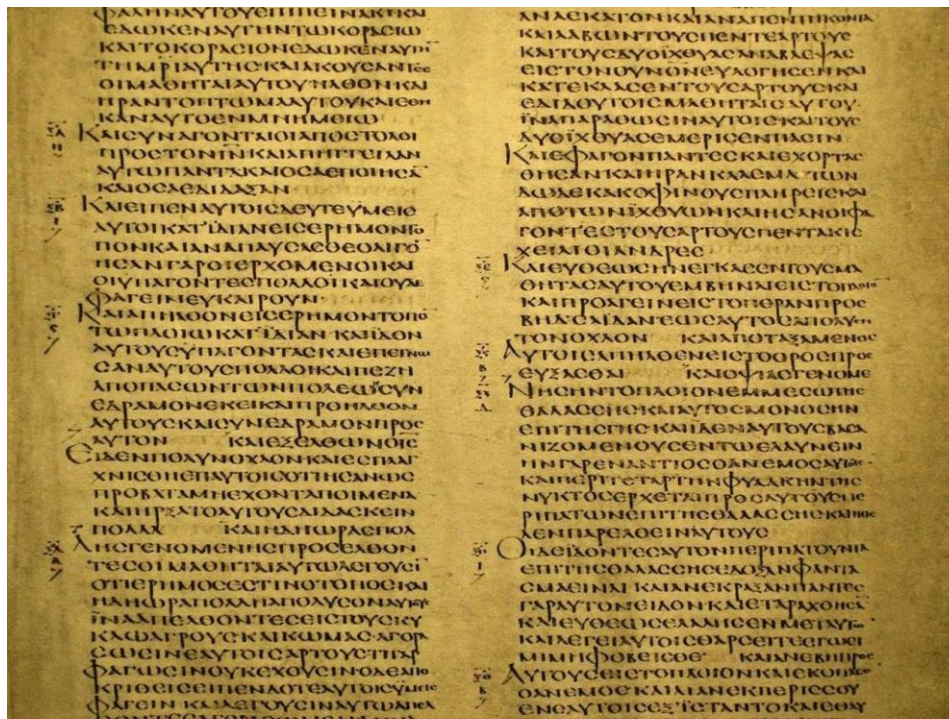 ΦΑΛΗΝΑΥΤΟΥΕΠΙΠΕΙΝΑΚΙΚΑΙ
ΕΔΩΚΕΝΑΥΤΗΝΤΩΚΟΡΑϹΙΩ
ΚΑΙΤΟΚΟΡΑϹΙΟΝΕΔΩΚΕΝΑΥΤΗ
ΤΗΜΡΙΑΥΤΗϹΚΑΙΑΚΟΥϹΑΝΤΕϹ
ΟΙΜΑΘΗΤΑΙΑΥΤΟΥΗΛΘΟΝΚΑΙ
ΗΡΑΝΤΟΠΤΩΜΑΑΥΤΟΥΚΑΙΕΘΗ
ΚΑΝΑΥΤΟΕΝΜΝΗΜΕΙΩ
ΚΑΙϹΥΝΑΓΟΝΤΑΙΟΙΑΠΟϹΤΟΛΟΙ
ΠΡΟϹΤΟΝΙΝΚΑΙΑΠΗΓΓΕΙΛΑΝ
ΑΥΤΩΠΑΝΤΑΚΑΙΟϹΑΕΠΟΙΗϹᾹ
ΚΑΙΟϹΑΕΔΙΔΑΞΑΝ·
ΚΑΙΕΙΠΕΝΑΥΤΟΙϹΔΕΥΤΕΫΜΕΙϹ
ΑΥΤΟΙΚΑΤΪΔΙΑΝΕΙϹΕΡΗΜΟΝΤΟ
ΠΟΝΚΑΙΑΝΑΠΑΥϹΑϹΘΕΟΛΙΓΟ̄
ΗϹΑΝΓΑΡΟΙΕΡΧΟΜΕΝΟΙΚΑΙ
ΟΙΥΠΑΓΟΝΤΕϹΠΟΛΛΟΙΚΑΙΟΥΔΕ
ΦΑΓΕΙΝΕΥΚΑΙΡΟΥΝ·
ΚΑΙΑΠΗΛΘΟΝΕΙϹΕΡΗΜΟΝΤΟΠΟ̄
ΤΩΠΛΟΙΩΚΑΤΪΔΙΑΝ ΚΑΙΪΔΟΝ
ΑΥΤΟΥϹΫΠΑΓΟΝΤΑϹΚΑΙΕΠΕΓΝΩ
ϹΑΝΑΥΤΟΥϹΠΟΛΛΟΙΚΑΙΠΕΖΗ
ΑΠΟΠΑϹΩΝΤΩΝΠΟΛΕΩΝϹΥΝ
ΕΔΡΑΜΟΝΕΚΕΙΚΑΙΠΡΟΗΛΘΟΝ
ΑΥΤΟΥϹΚΑΙϹΥΝΕΔΡΑΜΟΝΠΡΟϹ
ΑΥΤΟΝ ΚΑΙΕΞΕΛΘΩΝΟΙϹ
ΕΙΔΕΝΠΟΛΥΝΟΧΛΟΝΚΑΙΕϹΠΛΑΓ
ΧΝΙϹΘΗΕΠΑΥΤΟΙϹΟΤΙΗϹΑΝΩϹ
ΠΡΟΒΑΤΑΜΗΕΧΟΝΤΑΠΟΙΜΕΝΑ
ΚΑΙΗΡΞΑΤΟΑΥΤΟΥϹΔΙΔΑϹΚΕΙΝ
ΠΟΛΛΑ ΚΑΙΗΔΗΩΡΑϹΠΟΛ
ΛΗϹΓΕΝΟΜΕΝΗϹΠΡΟϹΕΛΘΟΝ
ΤΕϹΟΙΜΑΘΗΤΑΙΑΥΤΩΛΕΓΟΥϹῙ
ΟΤΙΕΡΗΜΟϹΕϹΤΙΝΟΤΟΠΟϹΚΑΙ
ΗΔΗΩΡΑΠΟΛΛΗΑΠΟΛΥϹΟΝΑΥΤΟΥϹ
ΪΝΑΑΠΕΛΘΟΝΤΕϹΕΙϹΤΟΥϹΚΥ
ΚΛΩΑΓΡΟΥϹΚΑΙΚΩΜΑϹΑΓΟΡΑ
ϹΩϹΙΝΕΑΥΤΟΙϹΑΡΤΟΥϹΤΙΓΑΡ
ΦΑΓΩϹΙΝΟΥΚΕΧΟΥϹΙΝΟΔΕΑΠΟ
ΚΡΙΘΕΙϹΕΙΠΕΝΔΟΤΕΑΥΤΟΙϹΫΜΕΙϹ
ΦΑΓΕΙΝ ΚΑΙΛΕΓΟΥϹΙΝΑΥΤΩΑΠΕΛ
ΑΝΑΕΚΑΤΟΝΚΑΙΑΝΑΠΕΝΤΗΚΟΝΤΑ
ΚΑΙΛΑΒΩΝΤΟΥϹΠΕΝΤΕΑΡΤΟΥϹ
ΚΑΙΤΟΥϹΔΥΟΪΧΘΥΑϹΑΝΑΒΛΕΨΑϹ
ΕΙϹΤΟΝΟΥΝΟΝΕΥΛΟΓΗϹΕΝΚΑΙ
ΚΑΤΕΚΛΑϹΕΝΤΟΥϹΑΡΤΟΥϹΚΑΙ
ΕΔΙΔΟΥΤΟΙϹΜΑΘΗΤΑΙϹΑΥΤΟΥ·
ΪΝΑΠΑΡΑΘΩϹΙΝΑΥΤΟΙϹΚΑΙΤΟΥϹ
ΔΥΟΪΧΘΥΑϹΕΜΕΡΙϹΕΝΠΑϹΙΝ
ΚΑΙΕΦΑΓΟΝΠΑΝΤΕϹΚΑΙΕΧΟΡΤΑϹ
ΘΗϹΑΝΚΑΙΗΡΑΝΚΛΑϹΜΑΤΩΝ
ΔΩΔΕΚΑΚΟΦΙΝΟΥϹΠΛΗΡΕΙϹΚΑΙ
ΑΠΟΤΩΝΪΧΘΥΩΝΚΑΙΗϹΑΝΟΙΦΑ
ΓΟΝΤΕϹΤΟΥϹΑΡΤΟΥϹΠΕΝΤΑΚΙϹ
ΧΕΙΛΙΟΙΑΝΔΡΕϹ·
ΚΑΙΕΥΘΕΩϹΗΝΕΓΚΑϹΕΝΤΟΥϹΜΑ
ΘΗΤΑϹΑΥΤΟΥΕΜΒΗΝΑΙΕΙϹΤΟΠΛΟΙΟ
ΚΑΙΠΡΟΑΓΕΙΝΕΙϹΤΟΠΕΡΑΝΠΡΟϹ
ΒΗΔϹΑΪΔΑΝΕΩϹΑΥΤΟϹΑΠΟΛΥϹΗ
ΤΟΝΟΧΛΟΝ ΚΑΙΑΠΟΤΑΞΑΜΕΝΟϹ
ΑΥΤΟΙϹΑΠΗΛΘΕΝΕΙϹΤΟΟΡΟϹΠΡΟϹ
ΕΥΞΑϹΘΑΙ ΚΑΙΟΨΙΑϹΓΕΝΟΜΕ
ΝΗϹΗΝΤΟΠΛΟΙΟΝΕΜΜΕϹΩΤΗϹ
ΘΑΛΑϹϹΗϹΚΑΙΑΥΤΟϹΜΟΝΟϹΗΝ
ΕΠΙΤΗϹΓΗϹ ΚΑΙΪΔΕΝΑΥΤΟΥϹΒΑϹΑ
ΝΙΖΟΜΕΝΟΥϹΕΝΤΩΕΛΑΥΝΕΙΝ
ΗΝΓΑΡΕΝΑΝΤΙΟϹΟΑΝΕΜΟϹΑΥΤΟΙϹ·
ΚΑΙΠΕΡΙΤΕΤΑΡΤΗΝΦΥΛΑΚΗΝΤΗϹ
ΝΥΚΤΟϹΕΡΧΕΤΑΙΠΡΟϹΑΥΤΟΥϹΠΕ
ΡΙΠΑΤΩΝΕΠΙΤΗϹΘΑΛΑϹϹΗϹΚΑΙΗΘΕ
ΛΕΝΠΑΡΕΛΘΕΙΝΑΥΤΟΥϹ
ΟΙΔΕΪΔΟΝΤΕϹΑΥΤΟΝΠΕΡΙΠΑΤΟΥΝΤΑ
ΕΠΙΤΗϹΘΑΛΑϹϹΗϹΕΔΟΞΑΝΦΑΝΤΑ
ϹΜΑΕΙΝΑΙ ΚΑΙΑΝΕΚΡΑΞΑΝΠΑΝΤΕϹ
ΓΑΡΑΥΤΟΝΕΙΔΟΝΚΑΙΕΤΑΡΑΧΘΗϹᾹ
ΚΑΙΕΥΘΕΩϹΕΛΑΛΗϹΕΝΜΕΤΑΥΤΩ̄
ΚΑΙΛΕΓΕΙΑΥΤΟΙϹΘΑΡϹΕΙΤΕΕΓΩΕΙ
ΜΙΜΗΦΟΒΕΙϹΘΕ· ΚΑΙΑΝΕΒΗΠΡΟϹ
ΑΥΤΟΥϹΕΙϹΤΟΠΛΟΙΟΝΚΑΙΕΚΟΠΑϹΕ
ΟΑΝΕΜΟϹΚΑΙΛΙΑΝΕΚΠΕΡΙϹϹΟΥ
ΕΝΕΑΥΤΟΙϹΕΞΪϹΤΑΝΤΟΚΑΙΕΘΑΥ